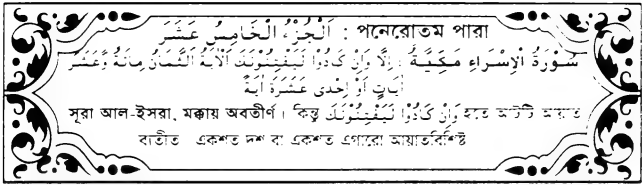 اَلْجُزْءُ الْخَامِسُ عَشَرَ : পনেরোতম পারা
سُوْرَةُ الْإِسْرَاءِ مَكِّيَّةٌ : إِلَّا وَإِنْ كَادُوْا لَيَفْتِنُوْنَكَ اَلْآيَةَ الثَّمَانِ مِائَةٌ وَّعَشَرُ
اٰيَاتٍ اَوْ اِحْدٰى عَشَرَةَ اٰيَةً
সূরা আল-ইসরা, মক্কায় অবতীর্ণ। কিন্তু وَإِنْ كَادُوْا لَيَفْتِنُوْنَكَ হতে আটটি আয়াত
ব্যতীত একশত দশ বা একশত এগারো আয়াতবিশিষ্ট